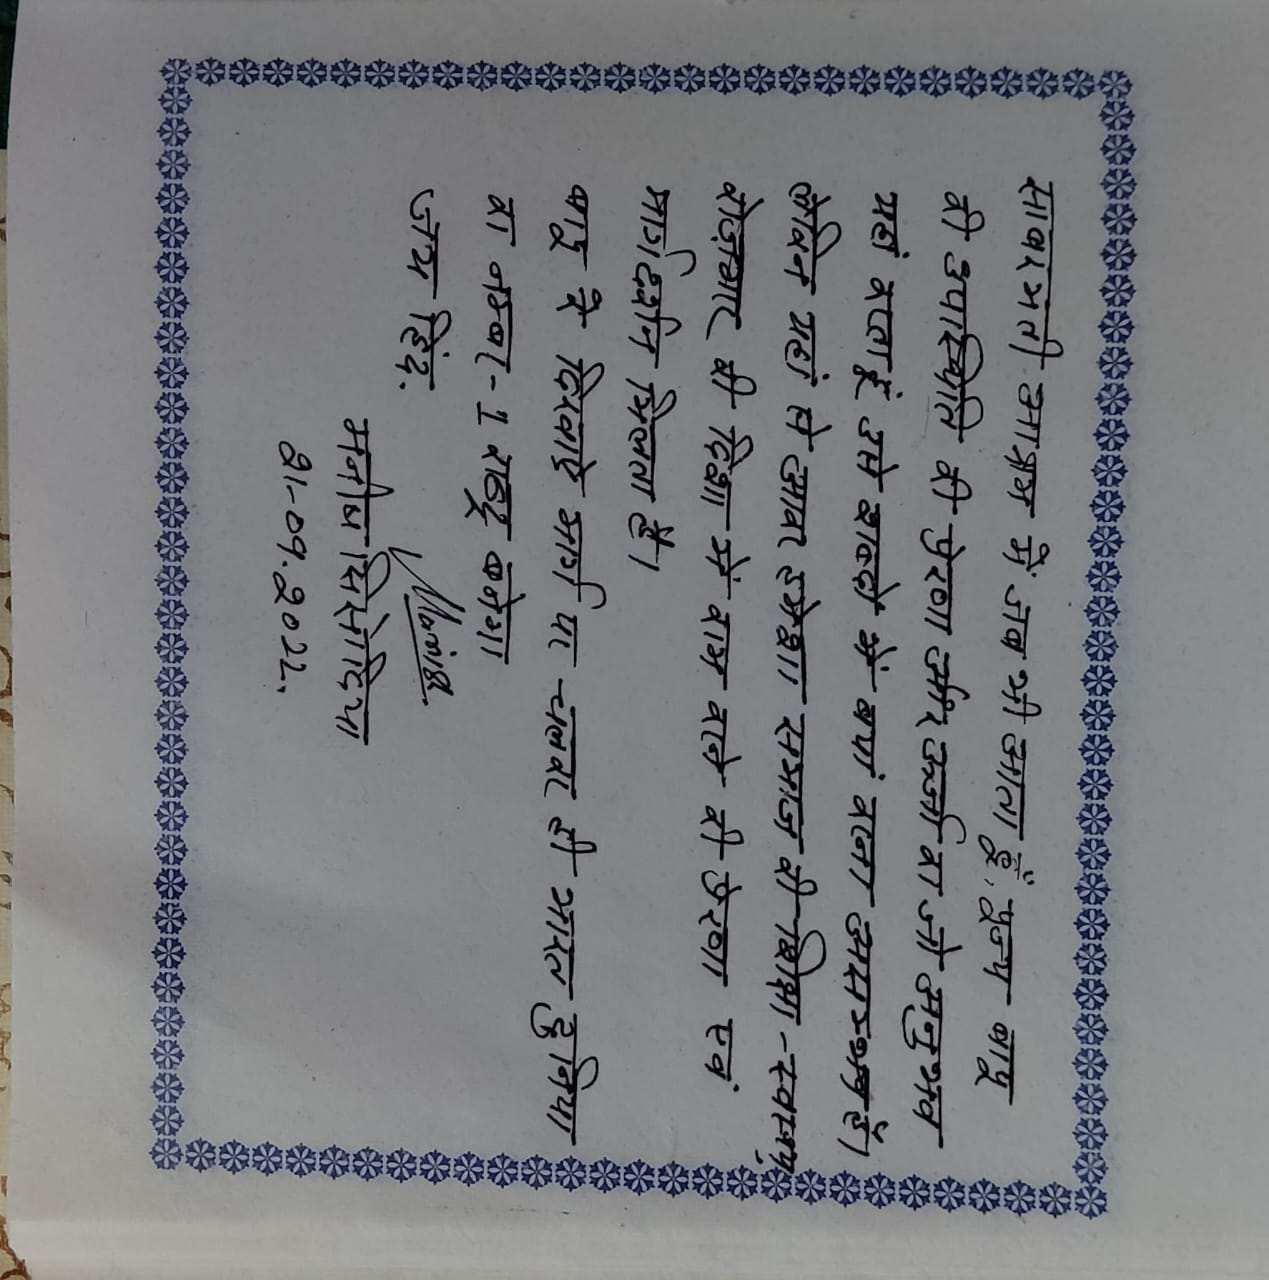 साबरमती आश्रम में जब भी आता हूँ, पूज्य बापू
की उपस्थिति की प्रेरणा और ऊर्जा का जो अनुभव
यहां करता हूं उसे शब्दों में बयां करना असम्भव है।
लेकिन यहां से आकर हमेशा समाज की शिक्षा - स्वास्थ्य,
रोज़गार की दिशा में काम करने की प्रेरणा एवं
मार्गदर्शन मिलता है।
बापू के दिखाए मार्ग पर चलकर ही भारत दुनिया
का नम्बर - 1 राष्ट्र बनेगा
जय हिंद.
Manish
मनीष सिसोदिया
21-09.2022.